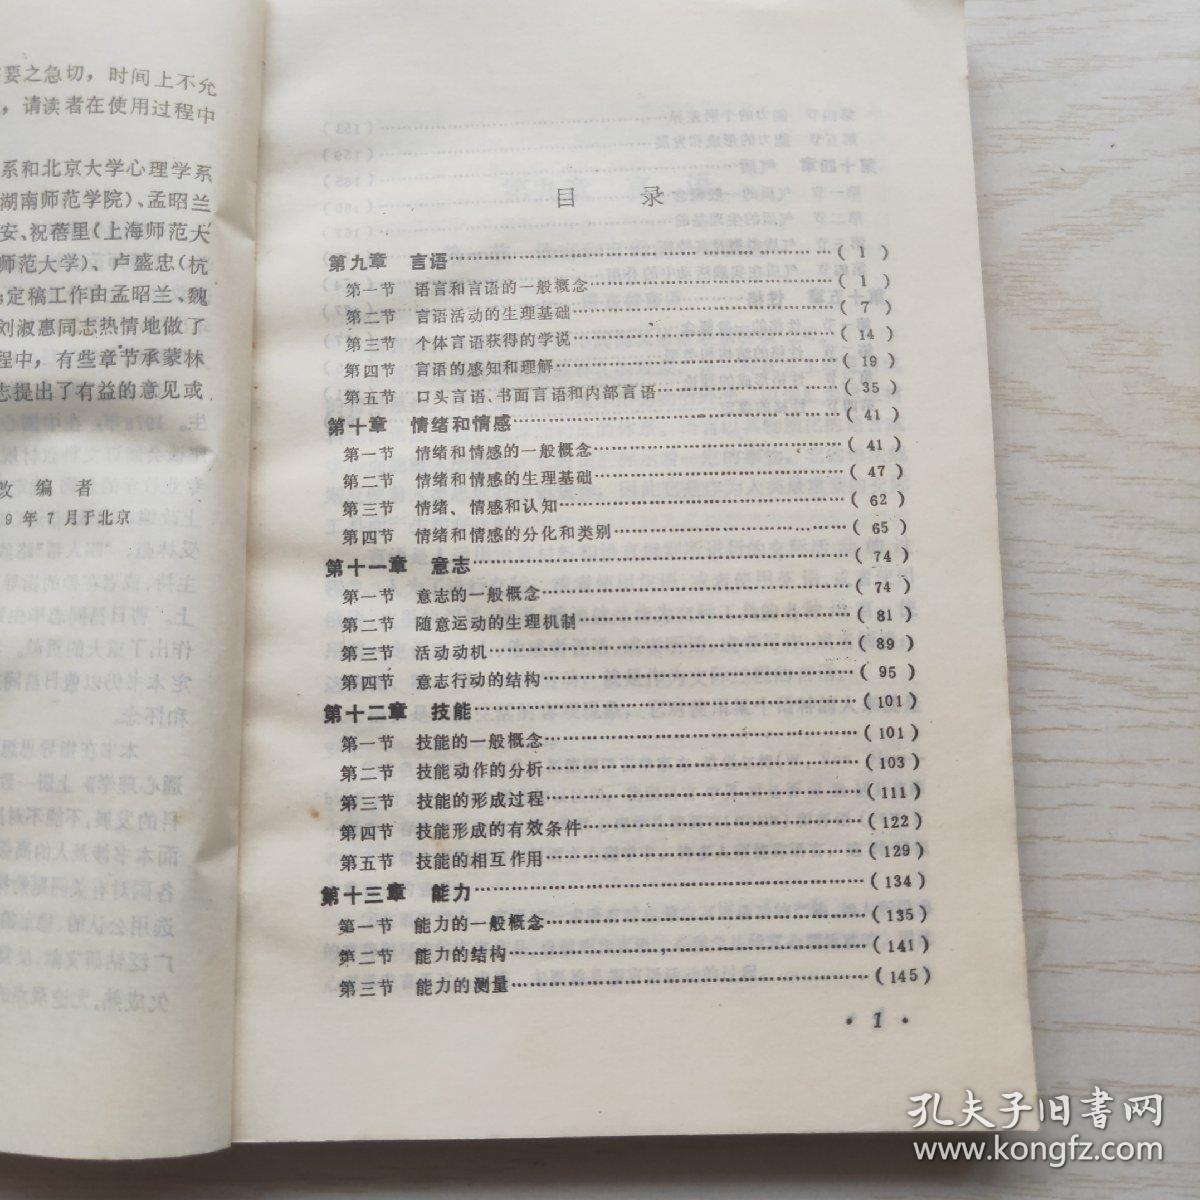 要之急切，时间上不允
，请读者在使用过程中
系和北京大学心理学系
湖南师范学院）、孟昭兰
安、祝蓓里（上海师范大
师范大学）、卢盛忠（杭
定稿工作由孟昭兰、魏
刘淑惠同志热情地做了
程中，有些章节承蒙林
志提出了有益的意见或
改编者
9年7月于北京
目录
第九章 言语……(1)
第一节 语言和言语的一般概念……(1)
第二节 言语活动的生理基础……(7)
第三节 个体言语获得的学说……(14)
第四节 言语的感知和理解……(19)
第五节 口头言语、书面言语和内部言语……(35)
第十章 情绪和情感……(41)
第一节 情绪和情感的一般概念……(41)
第二节 情绪和情感的生理基础……(47)
第三节 情绪、情感和认知……(62)
第四节 情绪和情感的分化和类别……(65)
第十一章 意志……(74)
第一节 意志的一般概念……(74)
第二节 随意运动的生理机制……(81)
第三节 活动动机……(89)
第四节 意志行动的结构……(95)
第十二章 技能……(101)
第一节 技能的一般概念……(101)
第二节 技能动作的分析……(103)
第三节 技能的形成过程……(111)
第四节 技能形成的有效条件……(122)
第五节 技能的相互作用……(129)
第十三章 能力……(134)
第一节 能力的一般概念……(135)
第二节 能力的结构……(141)
第三节 能力的测量……(145)
· 1 ·
孔夫子旧书网
www.kongfz.com